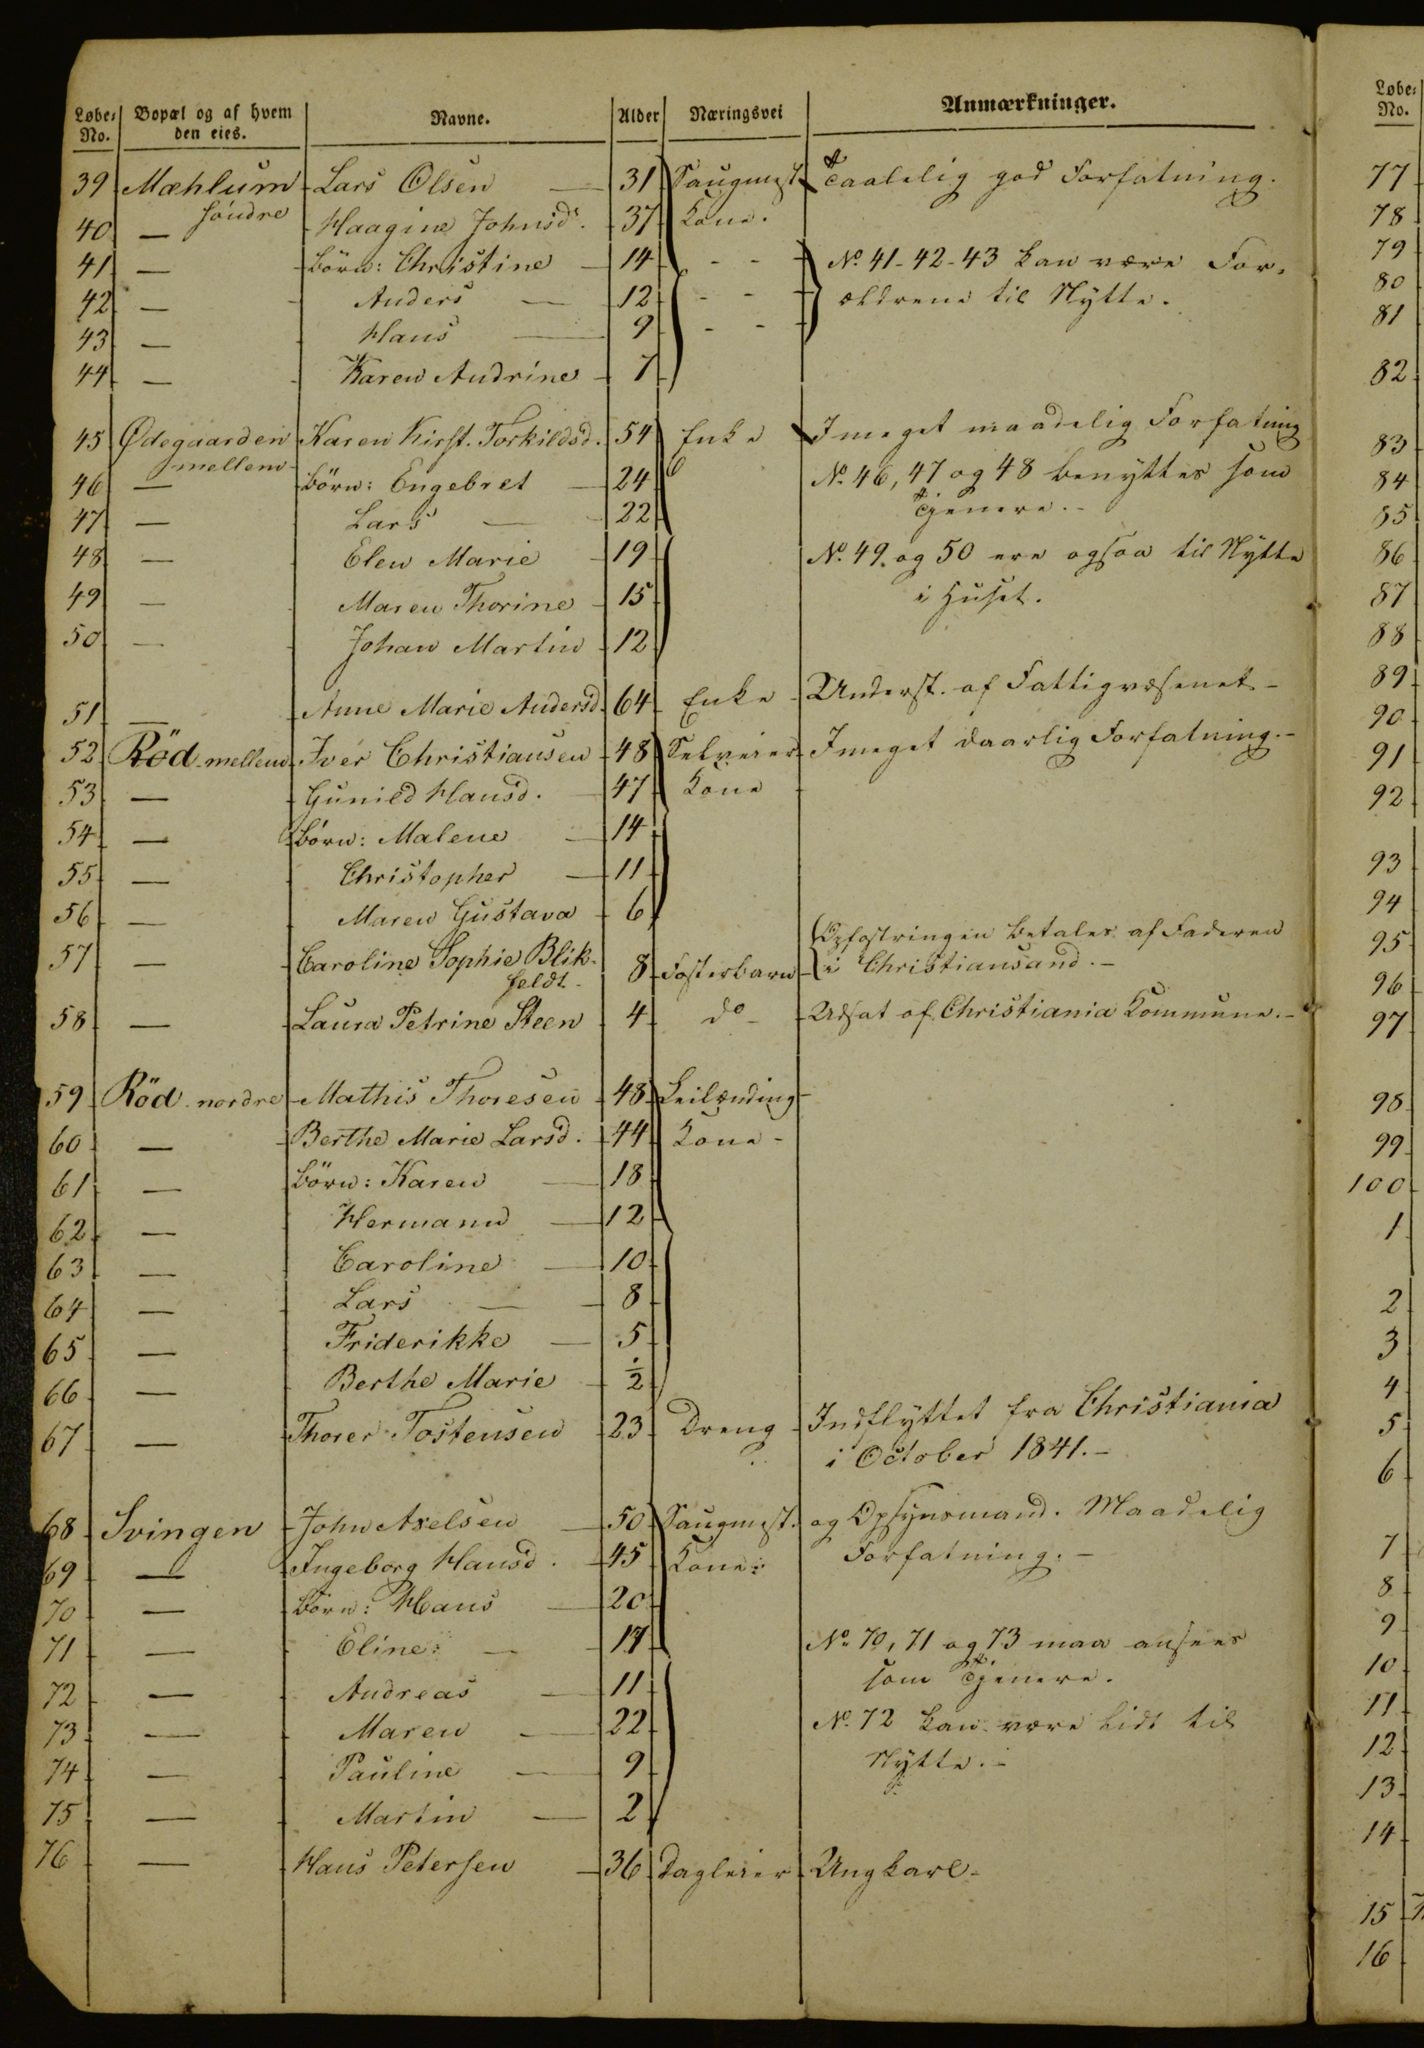 Løbe-No. Bopæl og af hvem den eies. Navne. Alder Næringsvei Anmærkninger.
39 Mæhlum søndre Lars Olsen — 31 Saugmest. Taalelig god Forfatning.
40 — Haagine Johnsd. 37 Kone.
41 — Börn: Christine — 14 - - No. 41-42-43 kan være For-
42 — Anders — 12 - - ældrene til Nytte.
43 — Hans — 9 - -
44 — Karen Andrine 7
45 Ødegaarden mellem Karen Kirst. Torkildsd. 54 Enke I meget maadelig Forfatning
46 — Börn: Engebret — 24 No. 46, 47 og 48 benyttes som
47 — Lars — 22 Tjenere.-
48 — Elen Marie 19 No. 49. og 50 ere ogsaa til Nytte
49 — Maren Thorine 15 i Huset.
50 — Johan Martin 12
51 — Anne Marie Andersd. 64 Enke Underst. af Fattigvæsenet-
52 Röd mellem Iver Christiansen 48 Selveier I meget daarlig Forfatning.-
53 — Gunild Hansd. 47 Kone
54 — Börn: Malene — 14
55 — Christopher — 11
56 — Maren Gustava 6
57 — Caroline Sophie Blik-
feldt. 8 Fosterbarn Opfostringen betales af Faderen
i Christiansand.-
58 — Laura Petrine Steen 4 do Udsat af Christiania Kommune.-
59 Röd nordre Mathis Thoresen 48 Leilænding
60 — Berthe Marie Larsd. 44 Kone
61 — Börn: Karen — 18
62 — Hermann — 12
63 — Caroline — 10
64 — Lars — 8
65 — Friderikke — 5
66 — Berthe Marie ½
67 — Thorer Tostensen 23 Dreng Indflyttet fra Christiania
i October 1841.-
68 Svingen John Axelsen — 50 Saugmest. og Opsynsmand. Maadelig
69 — Ingeborg Hansd. 45 Kone: Forfatning.-
70 — Börn: Hans — 20
71 — Eline: — 17 No. 70, 71 og 73 maa ansees
72 — Andreas — 11 som Tjenere.
73 — Maren — 22 No. 72 kan være lidt til
74 — Pauline — 9 Nytte.-
75 — Martin — 2
76 — Hans Petersen — 36 Dagleier Ungkarl-
Løbe-No.
77
78
79
80
81
82
83
84
85
86
87
88
89
90
91
92
93
94
95
96
97
98
99
100
1
2
3
4
5
6
7
8
9
10
11
12
13
14
15
16